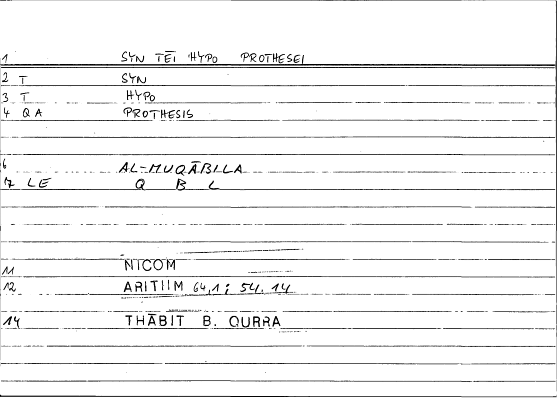 1 SYN TĒI HYPO PROTHESEI
2 T SYN
3 T HYPO
4 QA PROTHESIS
6 AL-MUQĀBILA
7 LE Q B L
11 NICOM
12 ARITIIM 64,1; 54.14
14 THĀBIT B. QURRA